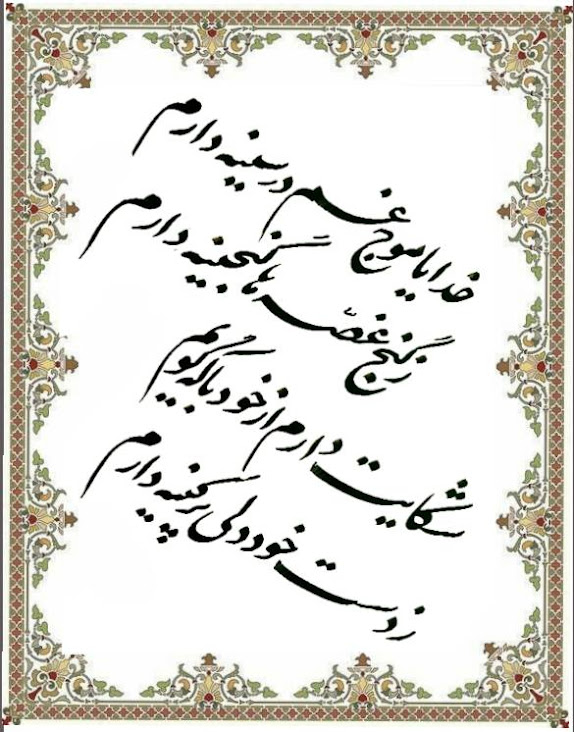 خدایا موج غم در سینه دارم
ز گنج غصّه ها گنجینه دارم
شکایت دارم از خود با که گویم
ز دست خود دلی پر کینه دارم